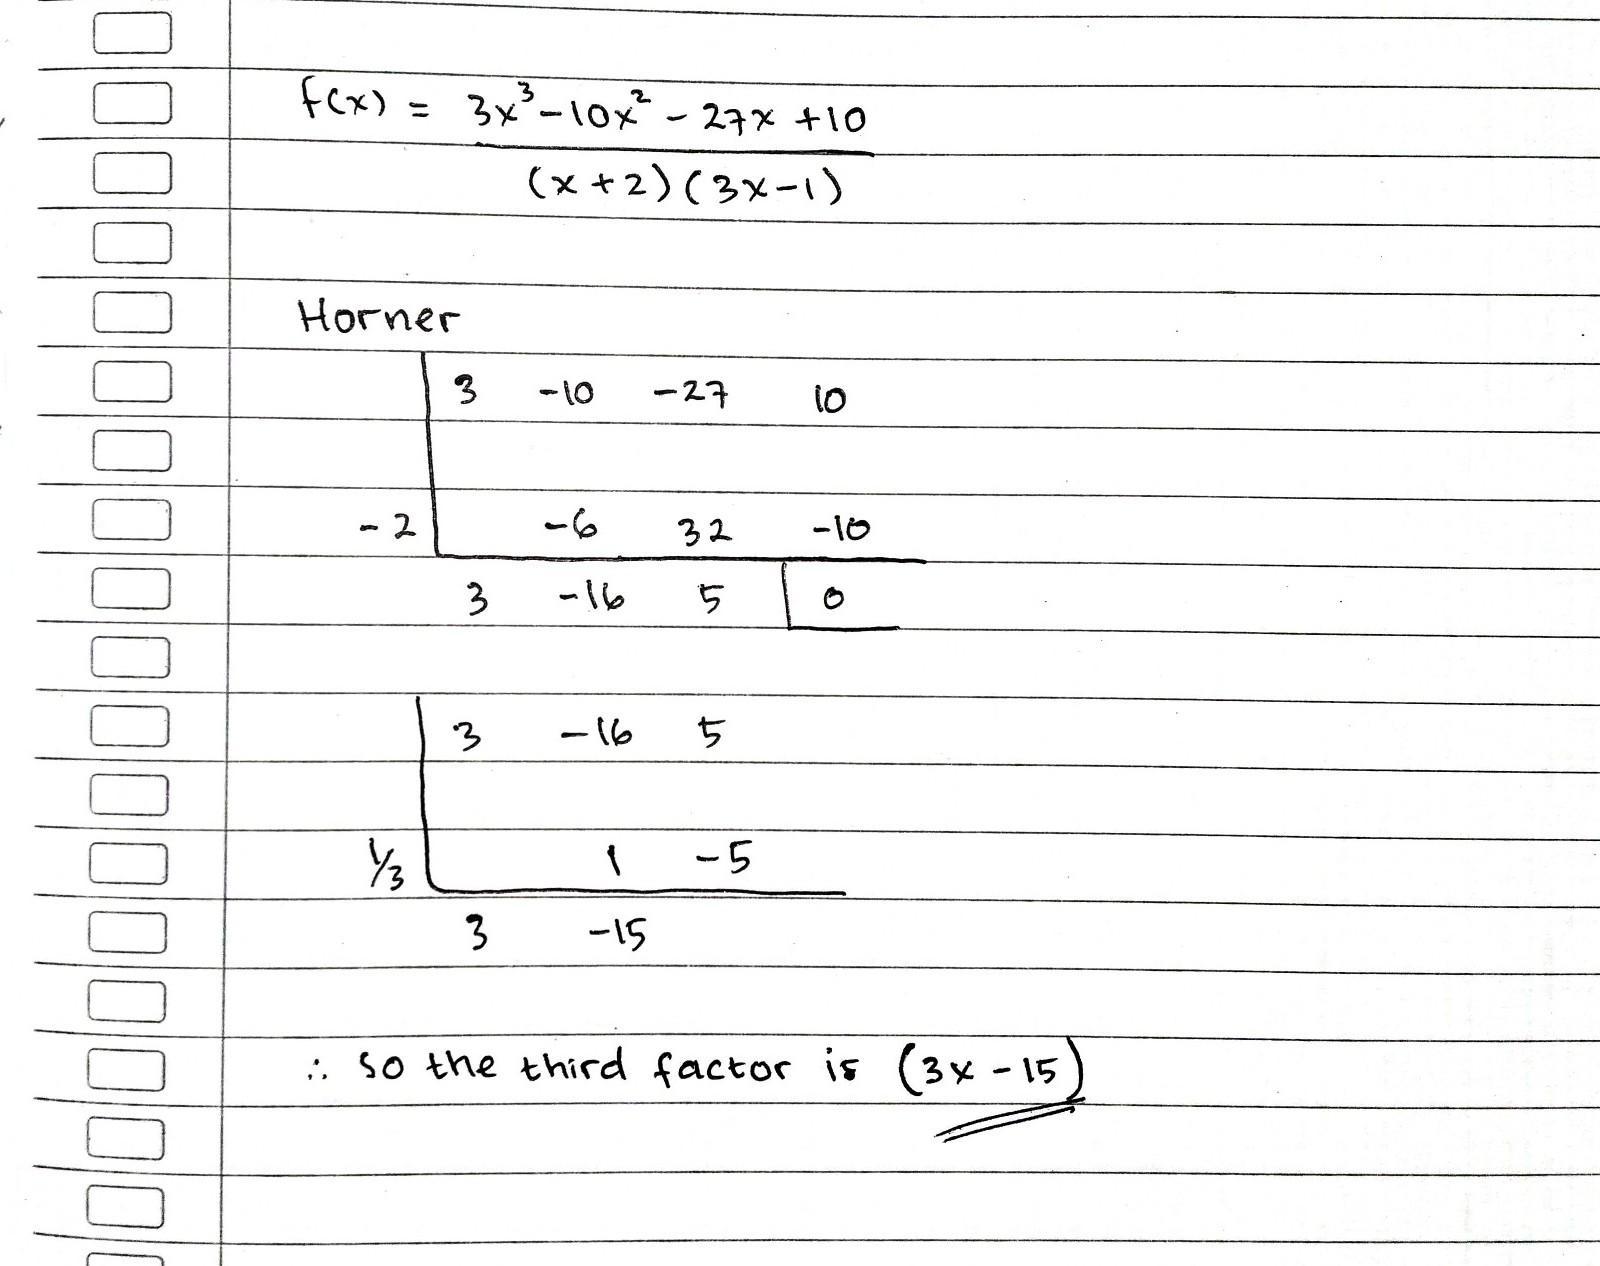 f(x) = 3x³ - 10x² - 27x + 10
(x + 2) (3x - 1)
Horner
3 -10 -27 10
-2 -6 32 -10
3 -16 5 0
3 -16 5
1/3 1 -5
3 -15
∴ so the third factor is (3x - 15)